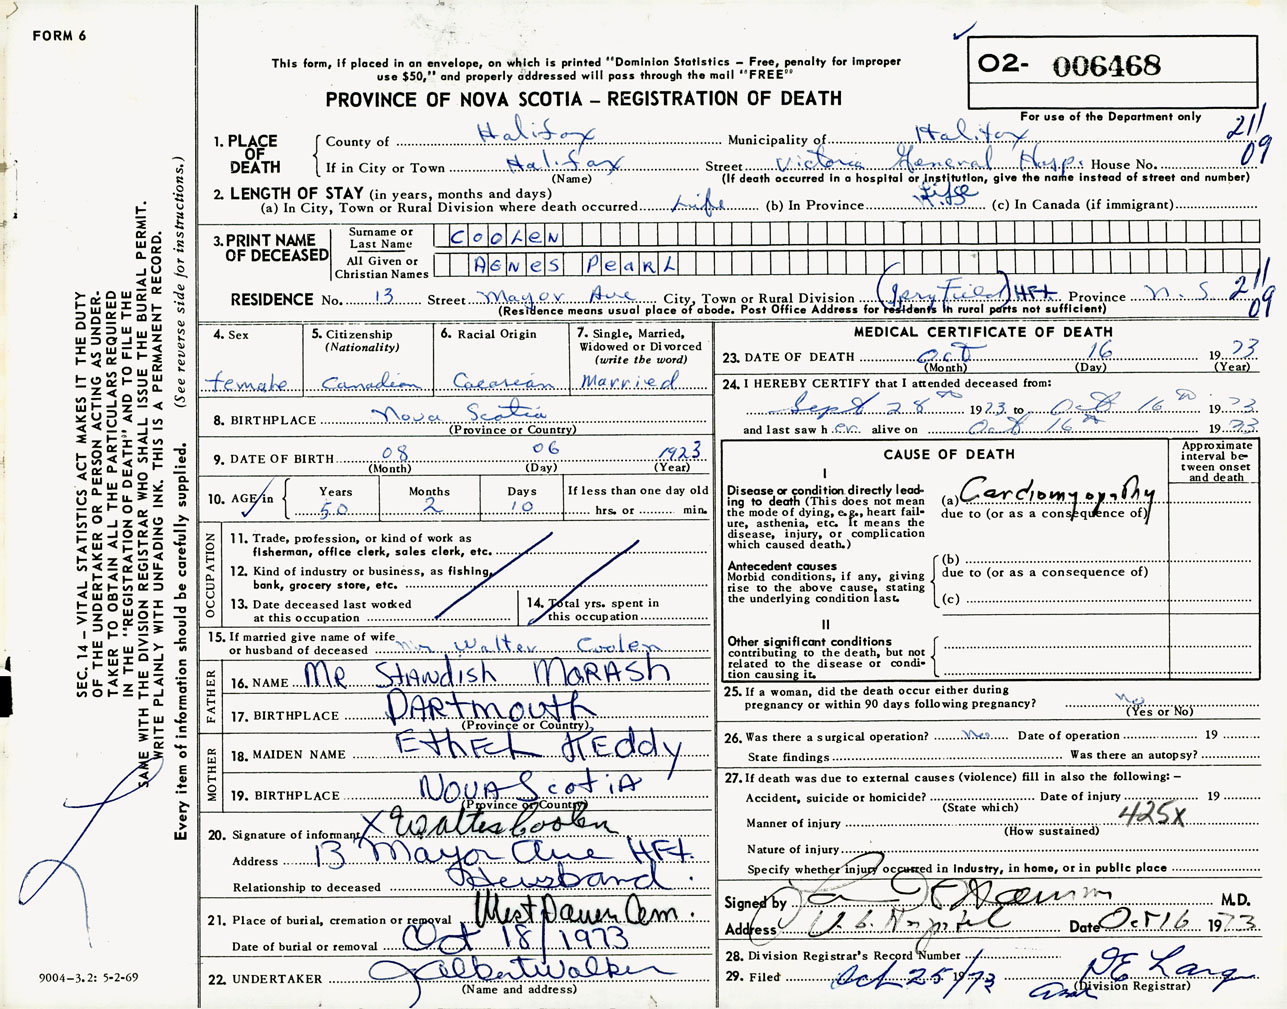 FORM 6
This form, if placed in an envelope, on which is printed "Dominion Statistics – Free, penalty for improper
use $50," and properly addressed will pass through the mail "FREE"
PROVINCE OF NOVA SCOTIA – REGISTRATION OF DEATH
O2- 006468
For use of the Department only
211
09
1. PLACE OF DEATH
County of Halifax Municipality of Halifax
If in City or Town Halifax Street Victoria General Hosp. House No.
(Name) (If death occurred in a hospital or institution, give the name instead of street and number)
2. LENGTH OF STAY (in years, months and days)
(a) In City, Town or Rural Division where death occurred Life (b) In Province Life (c) In Canada (if immigrant)
3. PRINT NAME OF DECEASED
Surname or Last Name COOLEN
All Given or Christian Names AGNES PEARL
RESIDENCE No. 13 Street Mayor Ave City, Town or Rural Division (Jeryfield) HFX Province N.S 211
09
(Residence means usual place of abode. Post Office Address for residents in rural parts not sufficient)
4. Sex
female
5. Citizenship
(Nationality)
Canadian
6. Racial Origin
Cacasian
7. Single, Married,
Widowed or Divorced
(write the word)
Married
8. BIRTHPLACE Nova Scotia
(Province or Country)
9. DATE OF BIRTH 08 06 1923
(Month) (Day) (Year)
10. AGE in
Years Months Days If less than one day old
50 2 10 hrs. or min.
OCCUPATION
11. Trade, profession, or kind of work as
fisherman, office clerk, sales clerk, etc.
12. Kind of industry or business, as fishing,
bank, grocery store, etc.
13. Date deceased last worked
at this occupation
14. Total yrs. spent in
this occupation
15. If married give name of wife
or husband of deceased Mr. Walter Coolen
FATHER
16. NAME Mr Standish Morash
17. BIRTHPLACE Dartmouth
(Province or Country)
MOTHER
18. MAIDEN NAME Ethel Keddy
19. BIRTHPLACE Nova Scotia
(Province or Country)
20. Signature of informant X Walter Coolen
Address 13 Mayor Ave Hfx.
Relationship to deceased Husband.
21. Place of burial, cremation or removal West Dover Cem.
Date of burial or removal Oct 18/1973
22. UNDERTAKER J Albert Walker
(Name and address)
MEDICAL CERTIFICATE OF DEATH
23. DATE OF DEATH Oct 16 1973
(Month) (Day) (Year)
24. I HEREBY CERTIFY that I attended deceased from:
Sept 28th 1973 to Oct 16th 1973
and last saw her alive on Oct 16th 1973
CAUSE OF DEATH
Approximate
interval be-
tween onset
and death
I
Disease or condition directly lead-
ing to death (This does not mean
the mode of dying, e.g., heart fail-
ure, asthenia, etc. It means the
disease, injury, or complication
which caused death.)
(a) Cardiomyopathy
due to (or as a consequence of)
Antecedent causes
Morbid conditions, if any, giving
rise to the above cause, stating
the underlying condition last.
(b)
due to (or as a consequence of)
(c)
II
Other significant conditions
contributing to the death, but not
related to the disease or condi-
tion causing it.
25. If a woman, did the death occur either during
pregnancy or within 90 days following pregnancy? No
(Yes or No)
26. Was there a surgical operation? Date of operation 19
State findings Was there an autopsy?
27. If death was due to external causes (violence) fill in also the following: –
Accident, suicide or homicide? Date of injury 19
(State which)
Manner of injury 425X
(How sustained)
Nature of injury
Specify whether injury occurred in Industry, in home, or in public place
Signed by M.D.
Address V.G. Hospital Date Oct 16 1973
28. Division Registrar's Record Number
29. Filed Oct 25 1973
(Division Registrar)
SEC. 14 – VITAL STATISTICS ACT MAKES IT THE DUTY
OF THE UNDERTAKER OR PERSON ACTING AS UNDER-
TAKER TO OBTAIN ALL THE PARTICULARS REQUIRED
IN THE "REGISTRATION OF DEATH" AND TO FILE THE
SAME WITH THE DIVISION REGISTRAR WHO SHALL ISSUE THE BURIAL PERMIT.
WRITE PLAINLY WITH UNFADING INK. THIS IS A PERMANENT RECORD.
Every item of information should be carefully supplied. (See reverse side for instructions.)
9004-3.2: 5-2-69